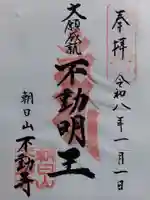 奉拝
令和八年一月一日
大願成就
不動明王
朝日山
不動寺